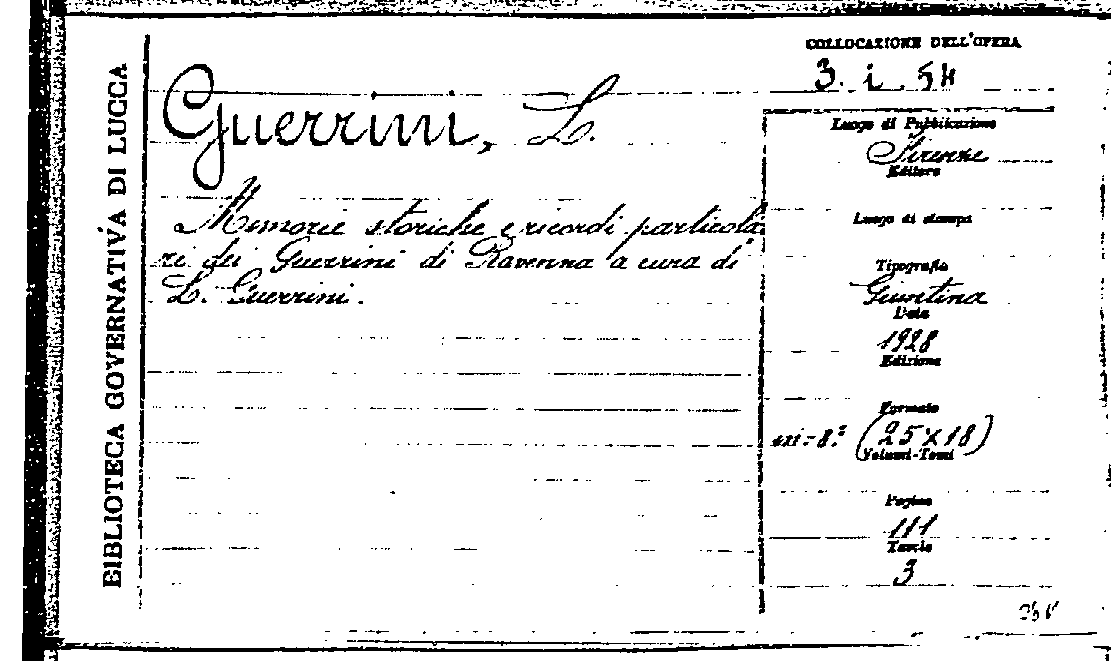 BIBLIOTECA GOVERNATIVA DI LUCCA
COLLOCAZIONE DELL'OPERA
3. i. 54
Guerrini, L.
Memorie storiche e ricordi particola
ri dei Guerrini di Ravenna a cura di
L. Guerrini.
Luogo di Pubblicazione
Firenze
Editore
Luogo di stampa
Tipografia
Giuntina
Data
1928
Edizione
Formato
in-8° (25x18)
Volumi-Tomi
Pagine
111
Tavole
3